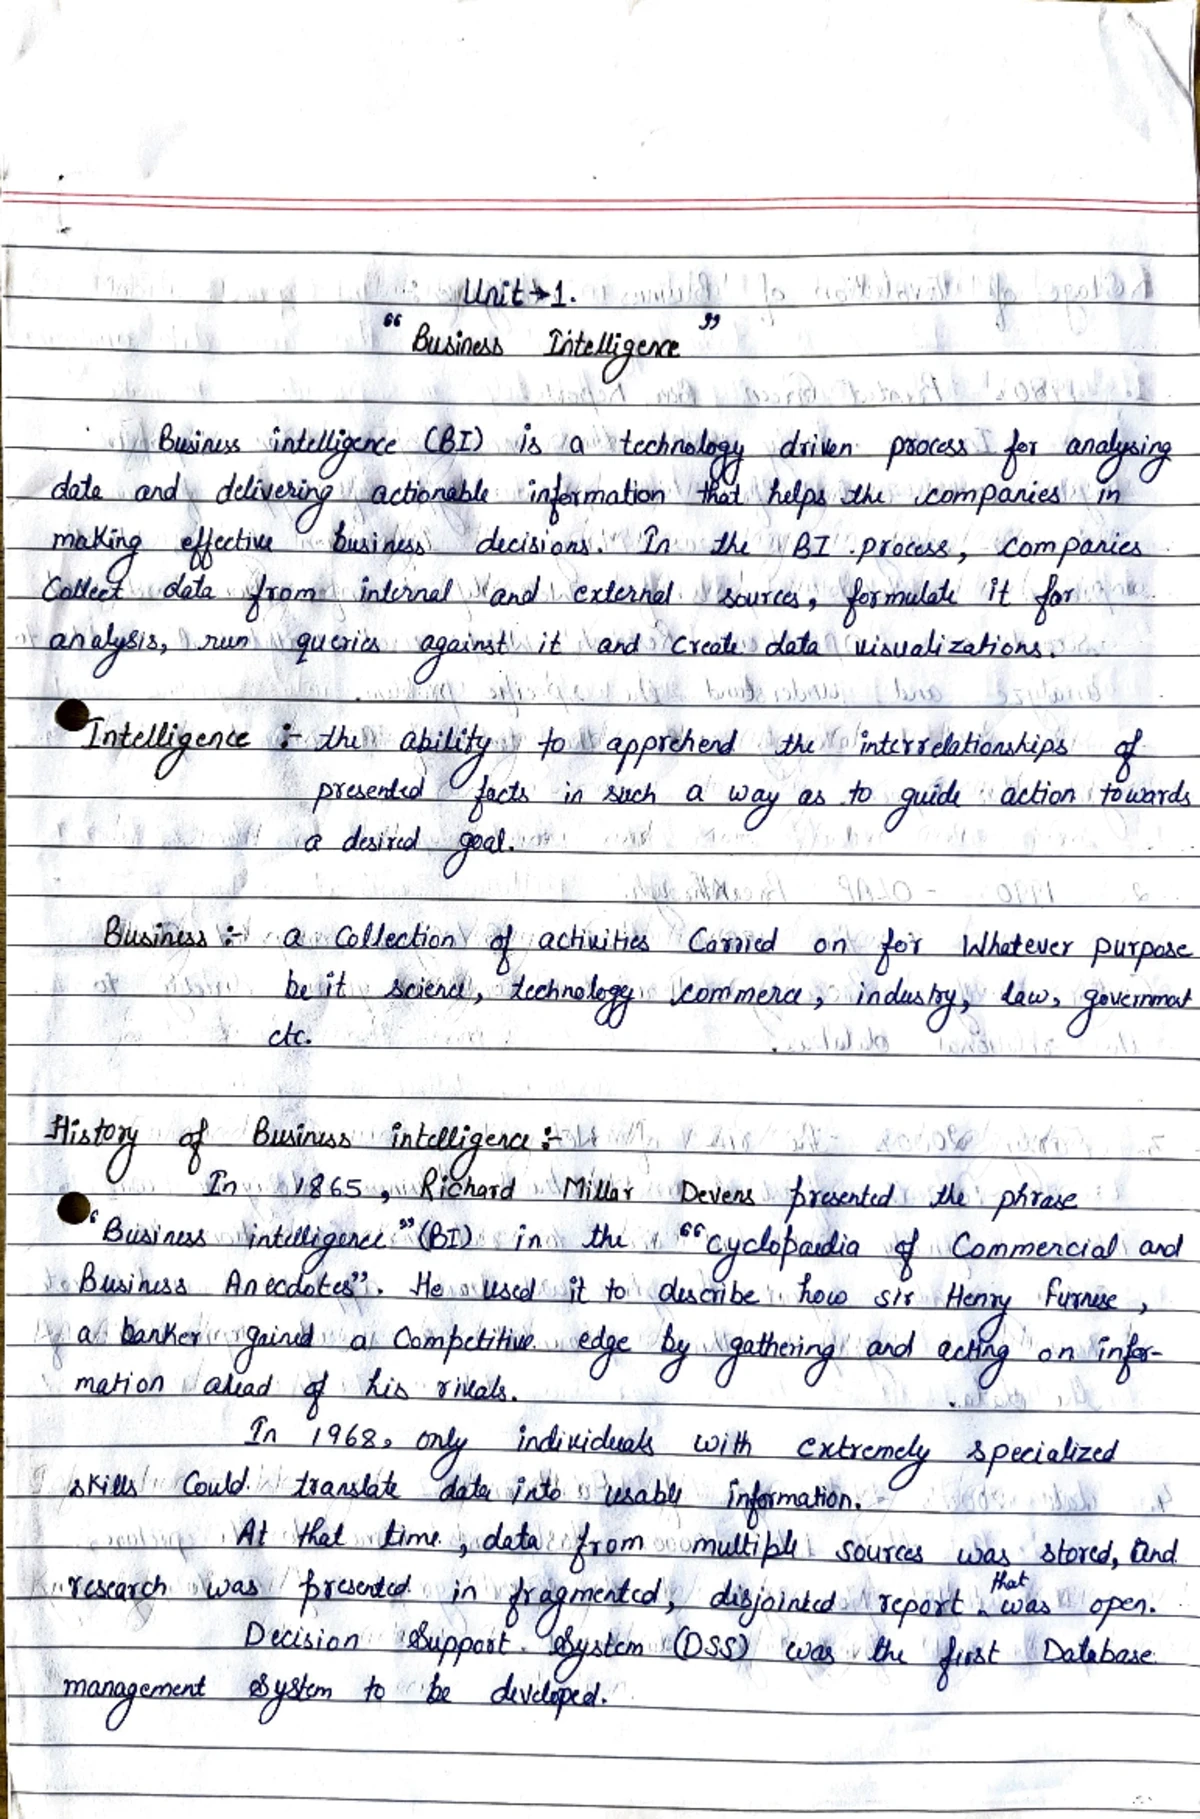 Unit → 1.
“Business Intelligence”
Business intelligence (BI) is a technology driven process for analysing
data and delivering actionable information that helps the companies in
making effective business decisions. In the BI process, companies
Collect data from internal and external sources, formulate it for
analysis, run queries against it and create data visualizations.
Intelligence :- the ability to apprehend the interrelationships of
presented facts in such a way as to guide action towards
a desired goal.
Business :- a collection of activities Carried on for Whatever purpose
be it science, technology commerce, industry, law, government
etc.
History of Business intelligence :-
In 1865, Richard Millar Devens presented the phrase
“Business intelligence” (BI) in the “cyclopaedia of Commercial and
Business Anecdotes”. He used it to describe how sir Henry Furnese,
a banker gained a Competitive edge by gathering and acting on infor-
mation ahead of his rivals.
In 1968, only individuals with extremely specialized
skills Could translate data into usable information.
At that time, data from multiple sources was stored, and
research was presented in fragmented, disjointed report that was open.
Decision Support System (DSS) was the first Database
management System to be developed.